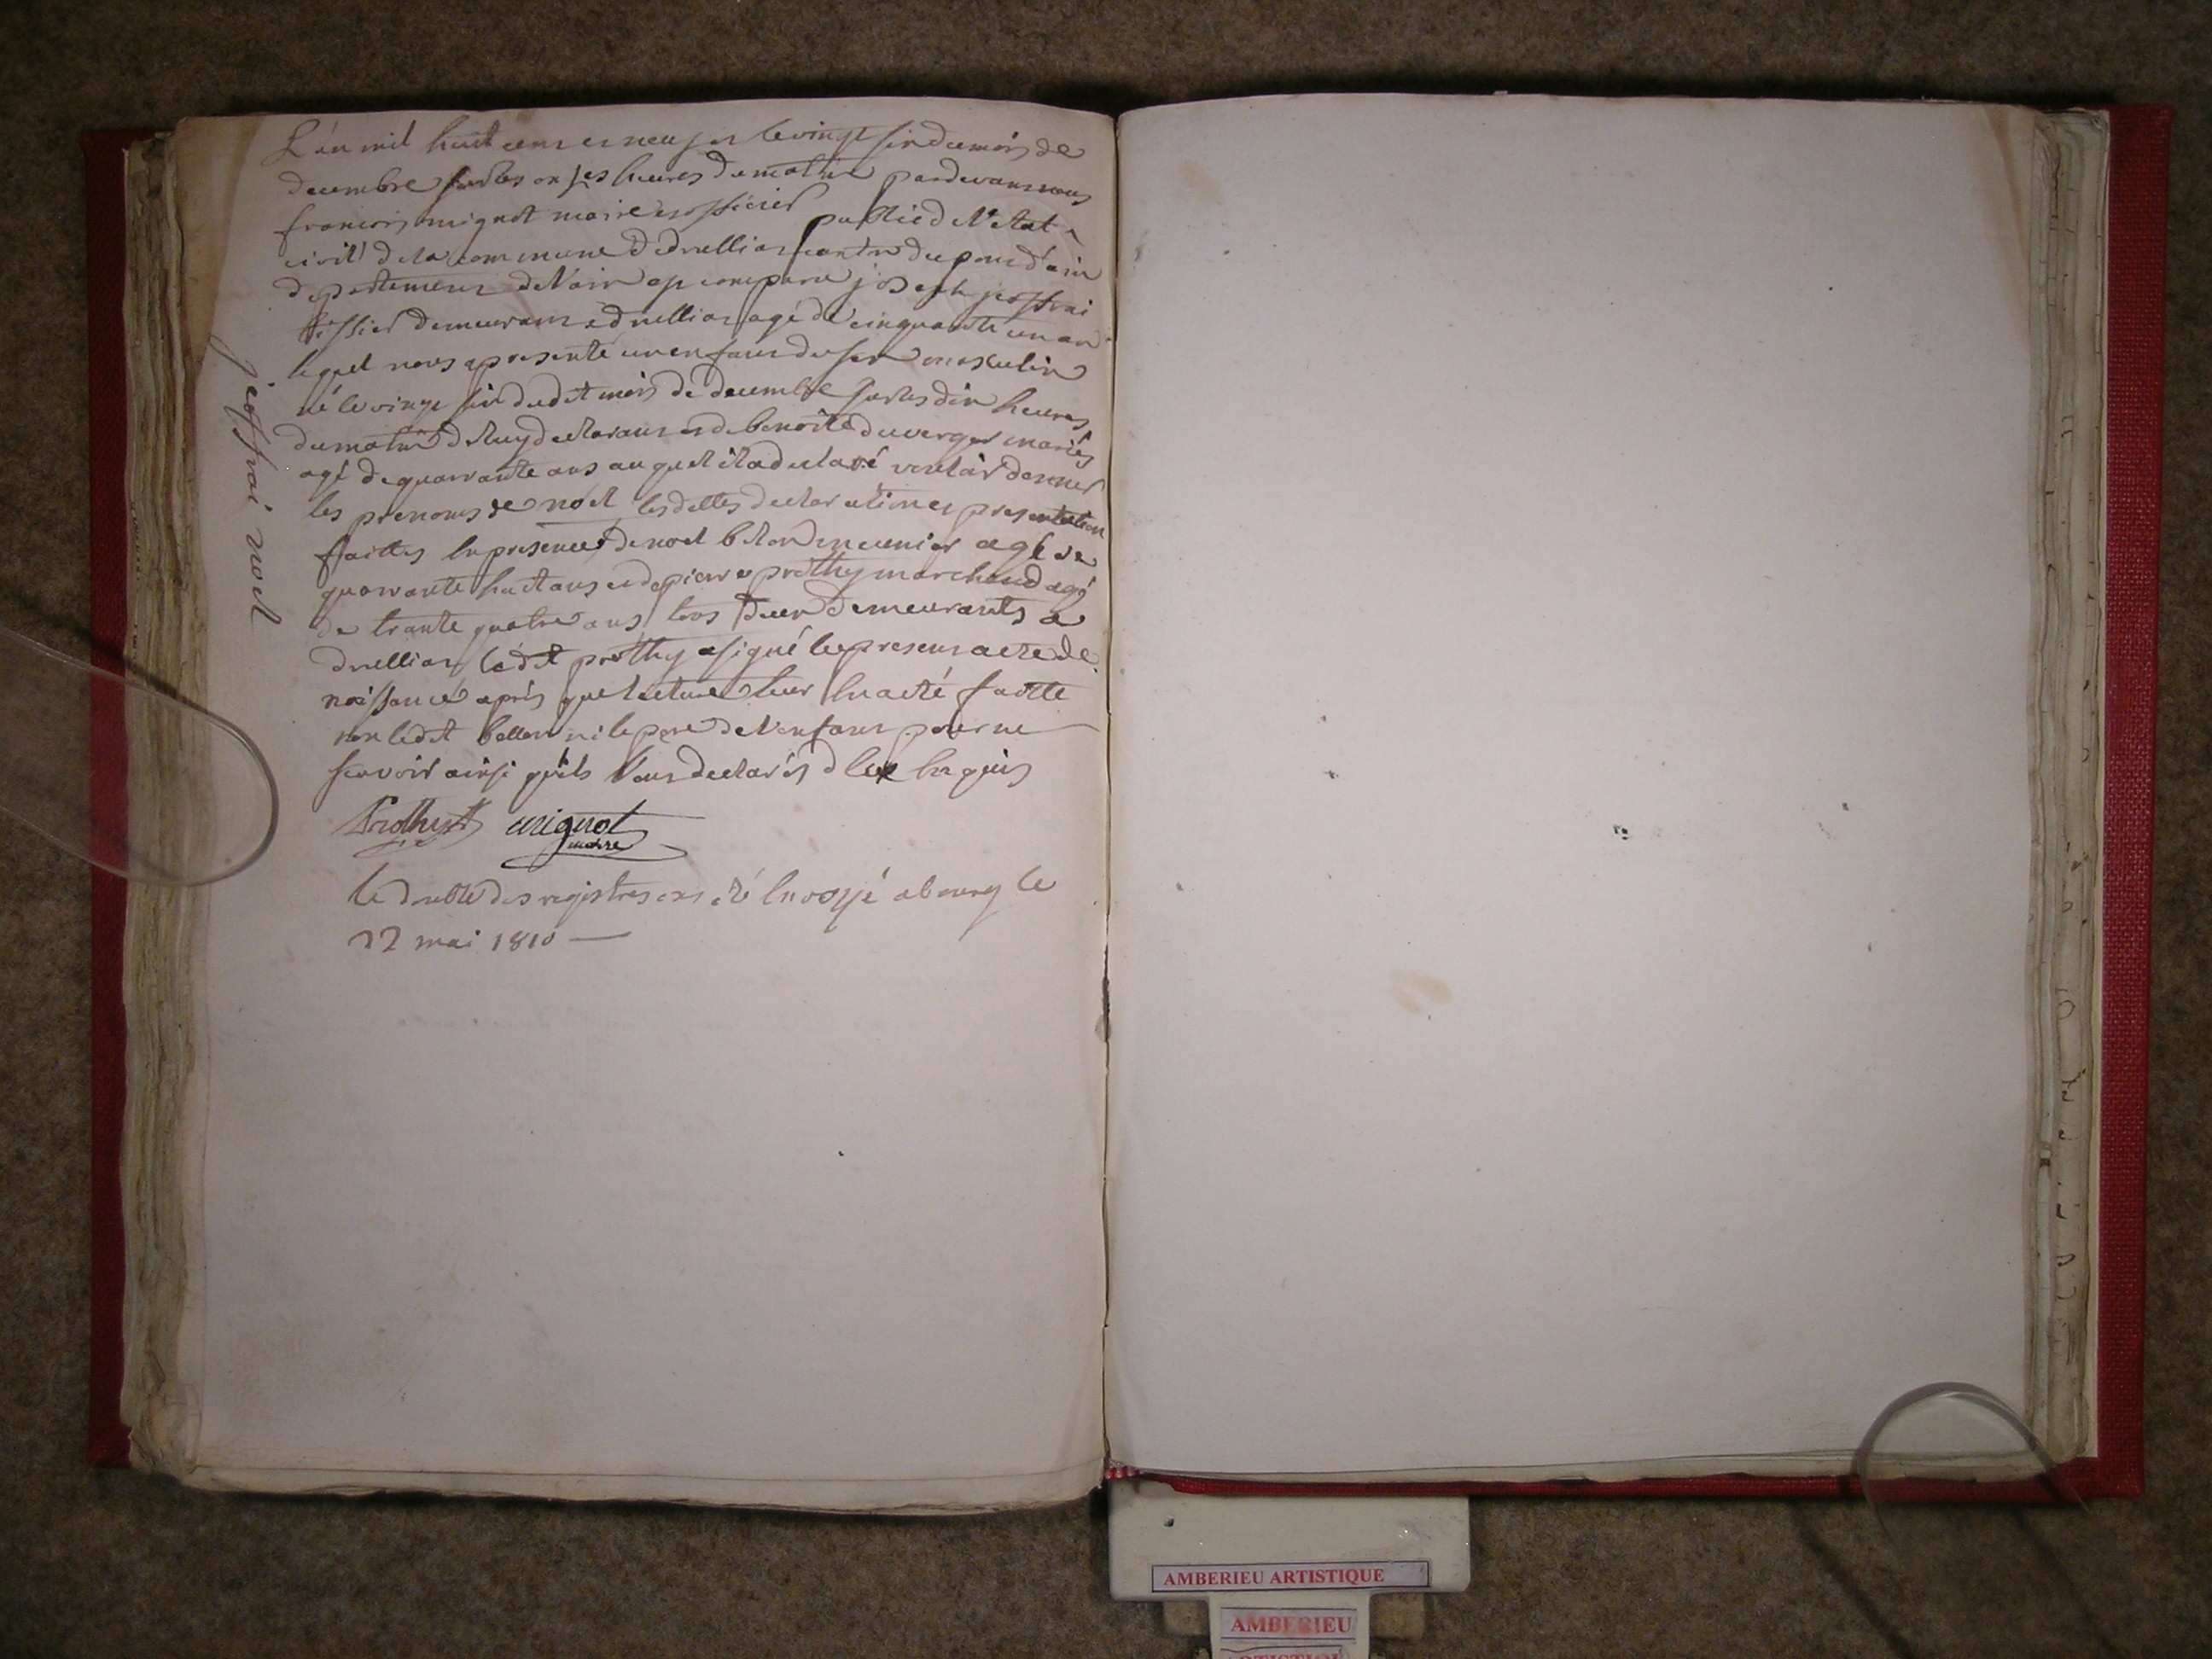 jeoffrai noel
L'an mil huit cens et neuf et le vingt six du mois de
decembre sur les onzes heures du matin pardevans nous
francois mignot maire et officier public de l'etat
civil de la commune de druillias canton du pons d'ain
departemens de l'ain est comparu joseph jeoffrai
tissier demeurans a druillias agé de cinquante un an
lequel nous a presenté un enfans du sex masculin
né le vingt six dudit mois de decembre sur les dix heures
du matin de luy declarans et de benoite duverger mariés
agé de quarrante ans auquel il a declaré vouloir donner
les prenoms de noel lesdittes declaration et presentation
faittes en presence de noel belon meunier agé de
quarrante huit ans et de pierre prothy marchand agé
de trante quatre ans tous deux demeurants a
druillias ledit prothy a signé le presens acte de
naissance après que lecture leur en a eté faitte
non ledit bellon ni le pere de l'enfans pour ne
scavoir ainsi qu'ils l'ons declarés de ce enquis
Prothy mignot
maire
le double des registres ons été envoyé a bourg le
12 mai 1810
AMBERIEU ARTISTIQUE
AMBERIEU
ARTISTIQUE